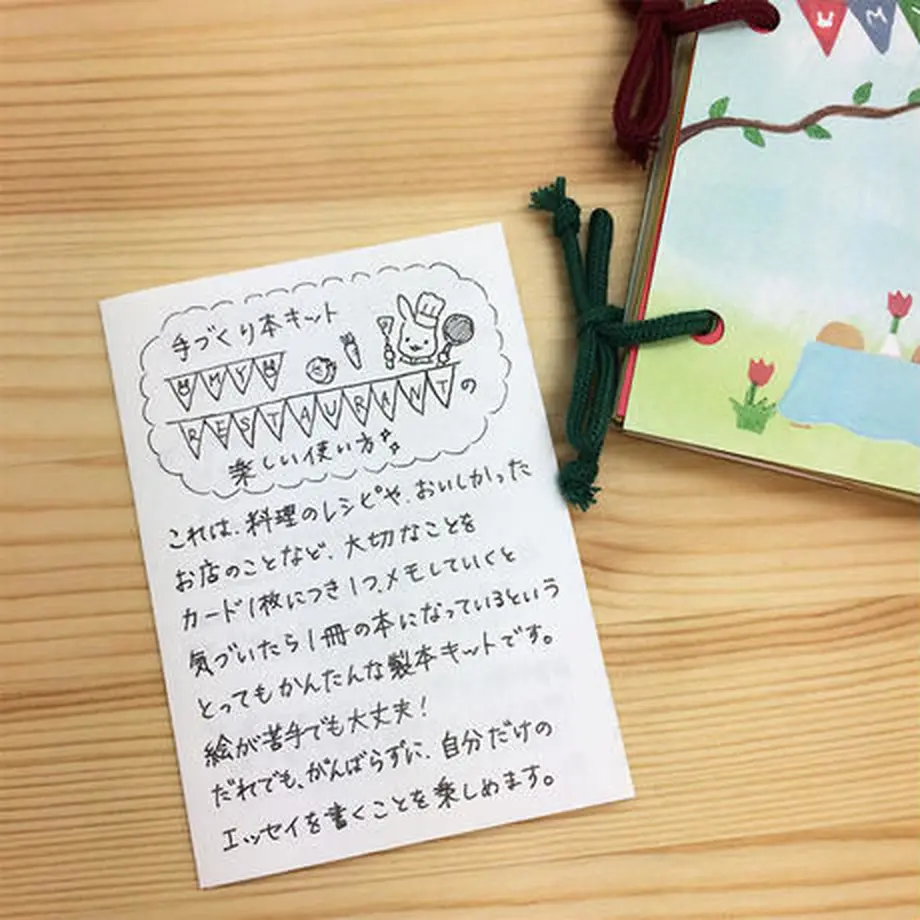 手づくり本キット
UMYU
RESTAURANTの
楽しい使い方
これは、料理のレシピや、おいしかった
お店のことなど、大切なことを
カード1枚につき1つ、メモしていくと
気づいたら1冊の本になっているという
とってもかんたんな製本キットです。
絵が苦手でも大丈夫!
だれでも、がんばらずに、自分だけの
エッセイを書くことを楽しめます。
UM